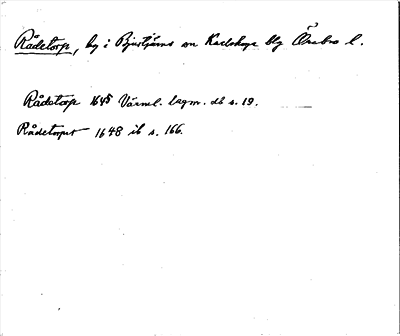 Rådetorp, by i Bjurtjärns sn Karlskoga blg Örebro l.
Rådetorp 1648 Värml. lagm. db s. 19.
Rådetorpet 1648 ib s. 166.